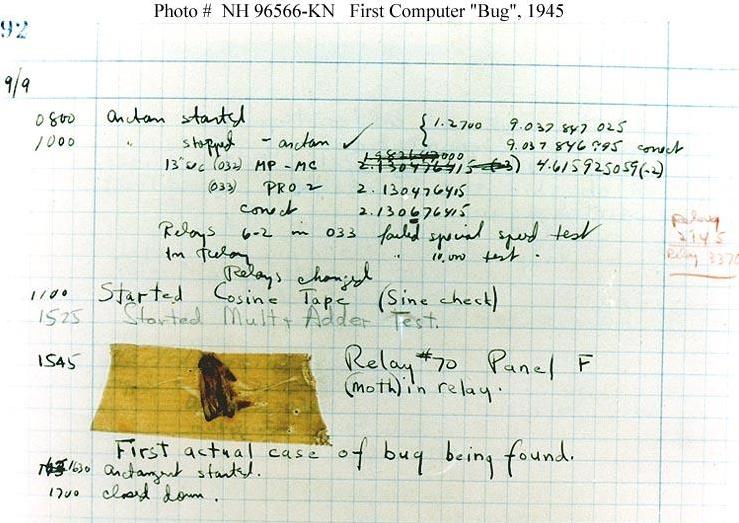 Photo # NH 96566-KN First Computer "Bug", 1945
92
9/9
0800 arctan started { 1.2700 9.037 847 025
1000 " stopped - arctan ✓ 9.037 846 995 correct
13" sec (032) MP - MC 2.130476415 (-3) 4.615925059(-2)
(033) PRO 2 2.130476415
correct 2.130676415
Relays 6-2 in 033 failed special speed test
In Relay " 10.000 test.
Relay
2145
Relay 3370
Relays changed
1100 Started Cosine Tape (Sine check)
1525 Started Mult + Adder Test.
1545 Relay #70 Panel F
(moth) in relay.
First actual case of bug being found.
1630 arctangent started.
1700 closed down.